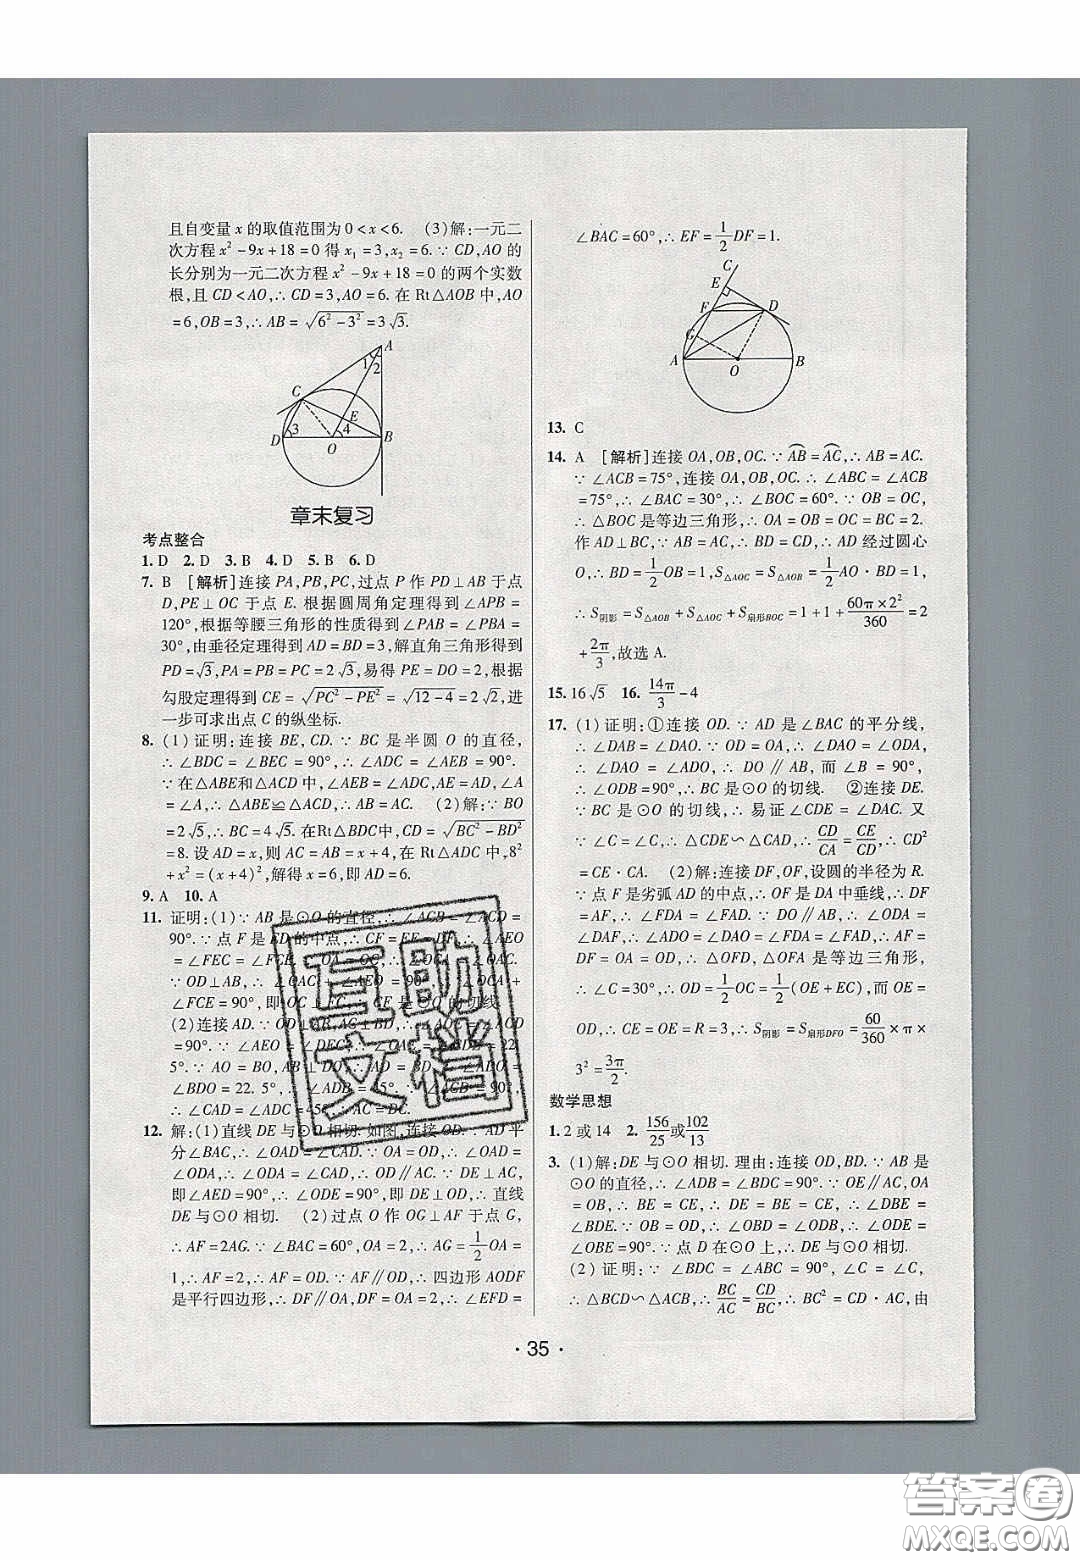 且自变量 x 的取值范围为 0 < x < 6. (3)解:一元二
次方程 x² - 9x + 18 = 0 得 x₁ = 3, x₂ = 6. ∵ CD, AO 的
长分别为一元二次方程 x² - 9x + 18 = 0 的两个实数
根,且 CD < AO, ∴ CD = 3, AO = 6. 在 Rt△AOB 中, AO
= 6, OB = 3, ∴ AB = √(6² - 3²) = 3√3.
A
1
2
C
E
D
3
O
4
B
章末复习
考点整合
1. D 2. D 3. B 4. D 5. B 6. D
7. B [解析]连接 PA, PB, PC, 过点 P 作 PD⊥AB 于点
D, PE⊥OC 于点 E. 根据圆周角定理得到∠APB =
120°, 根据等腰三角形的性质得到∠PAB = ∠PBA =
30°, 由垂径定理得到 AD = BD = 3, 解直角三角形得到
PD = √3, PA = PB = PC = 2√3, 易得 PE = DO = 2, 根据
勾股定理得到 CE = √(PC² - PE²) = √(12 - 4) = 2√2, 进
一步可求出点 C 的纵坐标.
8. (1) 证明:连接 BE, CD. ∵ BC 是半圆 O 的直径,
∴ ∠BDC = ∠BEC = 90°, ∴ ∠ADC = ∠AEB = 90°.
∵ 在△ABE和△ACD 中, ∠AEB = ∠ADC, AE = AD, ∠A
= ∠A, ∴ △ABE≌△ACD, ∴ AB = AC. (2)解:∵ BO
= 2√5, ∴ BC = 4√5. 在Rt△BDC中, CD = √(BC² - BD²)
= 8. 设 AD = x, 则 AC = AB = x + 4, 在 Rt△ADC 中, 8²
+ x² = (x + 4)², 解得 x = 6, 即 AD = 6.
9. A 10. A
11. 证明:(1) ∵ AB 是⊙O 的直径, ∴ ∠ACB = ∠ACD =
90°. ∵ 点 F 是 ED 的中点, ∴ CF = EF = DF, ∴ ∠AEO
= ∠FEC = ∠FCE. ∵ OA = OC, ∴ ∠OCA = ∠OAC.
∵ OD⊥AB, ∴ ∠OAC + ∠AEO = 90°, ∴ ∠OCA +
∠FCE = 90°, 即 OC⊥FC, ∴ CF 是⊙O 的切线.
(2)连接 AD. ∵ OD⊥AB, AC⊥BD, ∴ ∠AOE = ∠ACD
= 90°. ∵ ∠AEO = ∠DEC, ∴ ∠OAE = ∠BDO = 22.
5°. ∵ AO = BO, AB⊥DO, ∴ AD = BD, ∴ ∠ADO =
∠BDO = 22. 5°, ∴ ∠ADB = 45°. ∵ ∠ACD = 90°,
∴ ∠CAD = ∠ADC = 45°, ∴ AC = DC.
12. 解:(1)直线 DE 与⊙O 相切. 如图, 连接 OD. ∵ AD 平
分∠BAC, ∴ ∠OAD = ∠CAD. ∵ OA = OD, ∴ ∠OAD =
∠ODA, ∴ ∠ODA = ∠CAD, ∴ OD∥AC. ∵ DE⊥AC,
即∠AED = 90°, ∴ ∠ODE = 90°, 即 DE⊥OD, ∴ 直线
DE 与⊙O 相切. (2) 过点 O 作 OG⊥AF 于点 G,
∴ AF = 2AG. ∵ ∠BAC = 60°, OA = 2, ∴ AG = 1/2 OA =
1, ∴ AF = 2, ∴ AF = OD. ∵ AF∥OD, ∴ 四边形 AODF
是平行四边形, ∴ DF∥OA, DF = OA = 2, ∴ ∠EFD =
∠BAC = 60°, ∴ EF = 1/2 DF = 1.
C
E
F
D
G
A
O
B
13. C
14. A [解析]连接 OA, OB, OC. ∵ AB = AC, ∴ AB = AC.
∵ ∠ACB = 75°, 连接 OA, OB, OC, ∴ ∠ABC = ∠ACB
= 75°, ∴ ∠BAC = 30°, ∴ ∠BOC = 60°. ∵ OB = OC,
∴ △BOC 是等边三角形, ∴ OA = OB = OC = BC = 2.
作 AD⊥BC, ∵ AB = AC, ∴ BD = CD, ∴ AD 经过圆心
O, ∴ BD = 1/2 OB = 1, ∴ S△AOC = S△AOB = 1/2 AO · BD = 1,
∴ S阴影 = S△AOB + S△AOC + S扇形BOC = 1 + 1 + 60π × 2²/360 = 2
+ 2π/3, 故选 A.
15. 16√5 16. 14π/3 - 4
17. (1) 证明:①连接 OD. ∵ AD 是∠BAC 的平分线,
∴ ∠DAB = ∠DAO. ∵ OD = OA, ∴ ∠DAO = ∠ODA,
∴ ∠DAO = ∠ADO, ∴ DO∥AB, 而∠B = 90°,
∴ ∠ODB = 90°, ∴ BC 是⊙O 的切线. ②连接 DE.
∵ BC 是⊙O 的切线, ∴ 易证∠CDE = ∠DAC. 又
∵ ∠C = ∠C, ∴ △CDE∽△CAD, ∴ CD/CA = CE/CD, ∴ CD²
= CE · CA. (2)解:连接 DF, OF, 设圆的半径为 R.
∵ 点 F 是劣弧 AD 的中点, ∴ OF 是 DA 中垂线, ∴ DF
= AF, ∴ ∠FDA = ∠FAD. ∵ DO∥AB, ∴ ∠ODA =
∠DAF, ∴ ∠ADO = ∠DAO = ∠FDA = ∠FAD, ∴ AF =
DF = OA = OD, ∴ △OFD, △OFA 是等边三角形,
∴ ∠C = 30°, ∴ OD = 1/2 OC = 1/2 (OE + EC), 而 OE =
OD, ∴ CE = OE = R = 3, ∴ S阴影 = S扇形DFO = 60/360 × π ×
3² = 3π/2.
数学思想
1. 2 或 14 2. 156/25 或 102/13
3. (1)解:DE 与⊙O 相切. 理由:连接 OD, BD. ∵ AB 是
⊙O 的直径, ∴ ∠ADB = ∠BDC = 90°. ∵ OE∥AC, OA
= OB, ∴ BE = CE, ∴ DE = BE = CE, ∴ ∠DBE =
∠BDE. ∵ OB = OD, ∴ ∠OBD = ∠ODB, ∴ ∠ODE =
∠OBE = 90°. ∵ 点 D 在⊙O 上, ∴ DE 与⊙O 相切.
(2) 证明: ∵ ∠BDC = ∠ABC = 90°, ∠C = ∠C,
∴ △BCD∽△ACB, ∴ BC/AC = CD/BC, ∴ BC² = CD · AC, 由
互助
文档
· 35 ·
答案卷
MXQE.COM